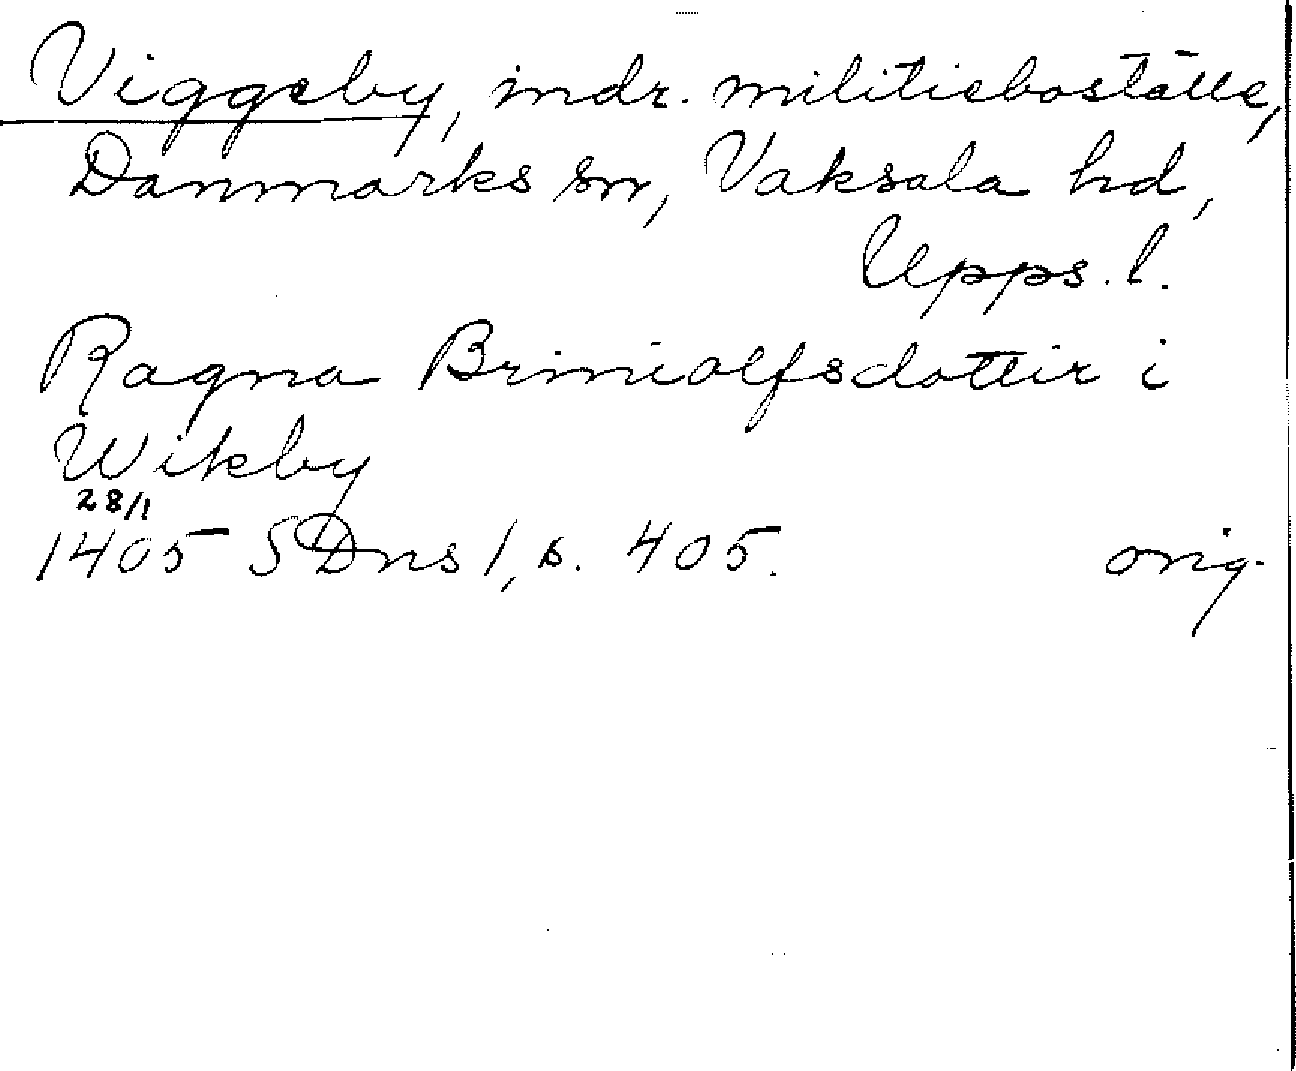 Viggeby, indr. militieboställe,
Danmarks sn, Vaksala hd,
Upps. l.
Ragna Briniolfsdottir i
Wikby
28/1
1405 SDns 1, s. 405. orig.